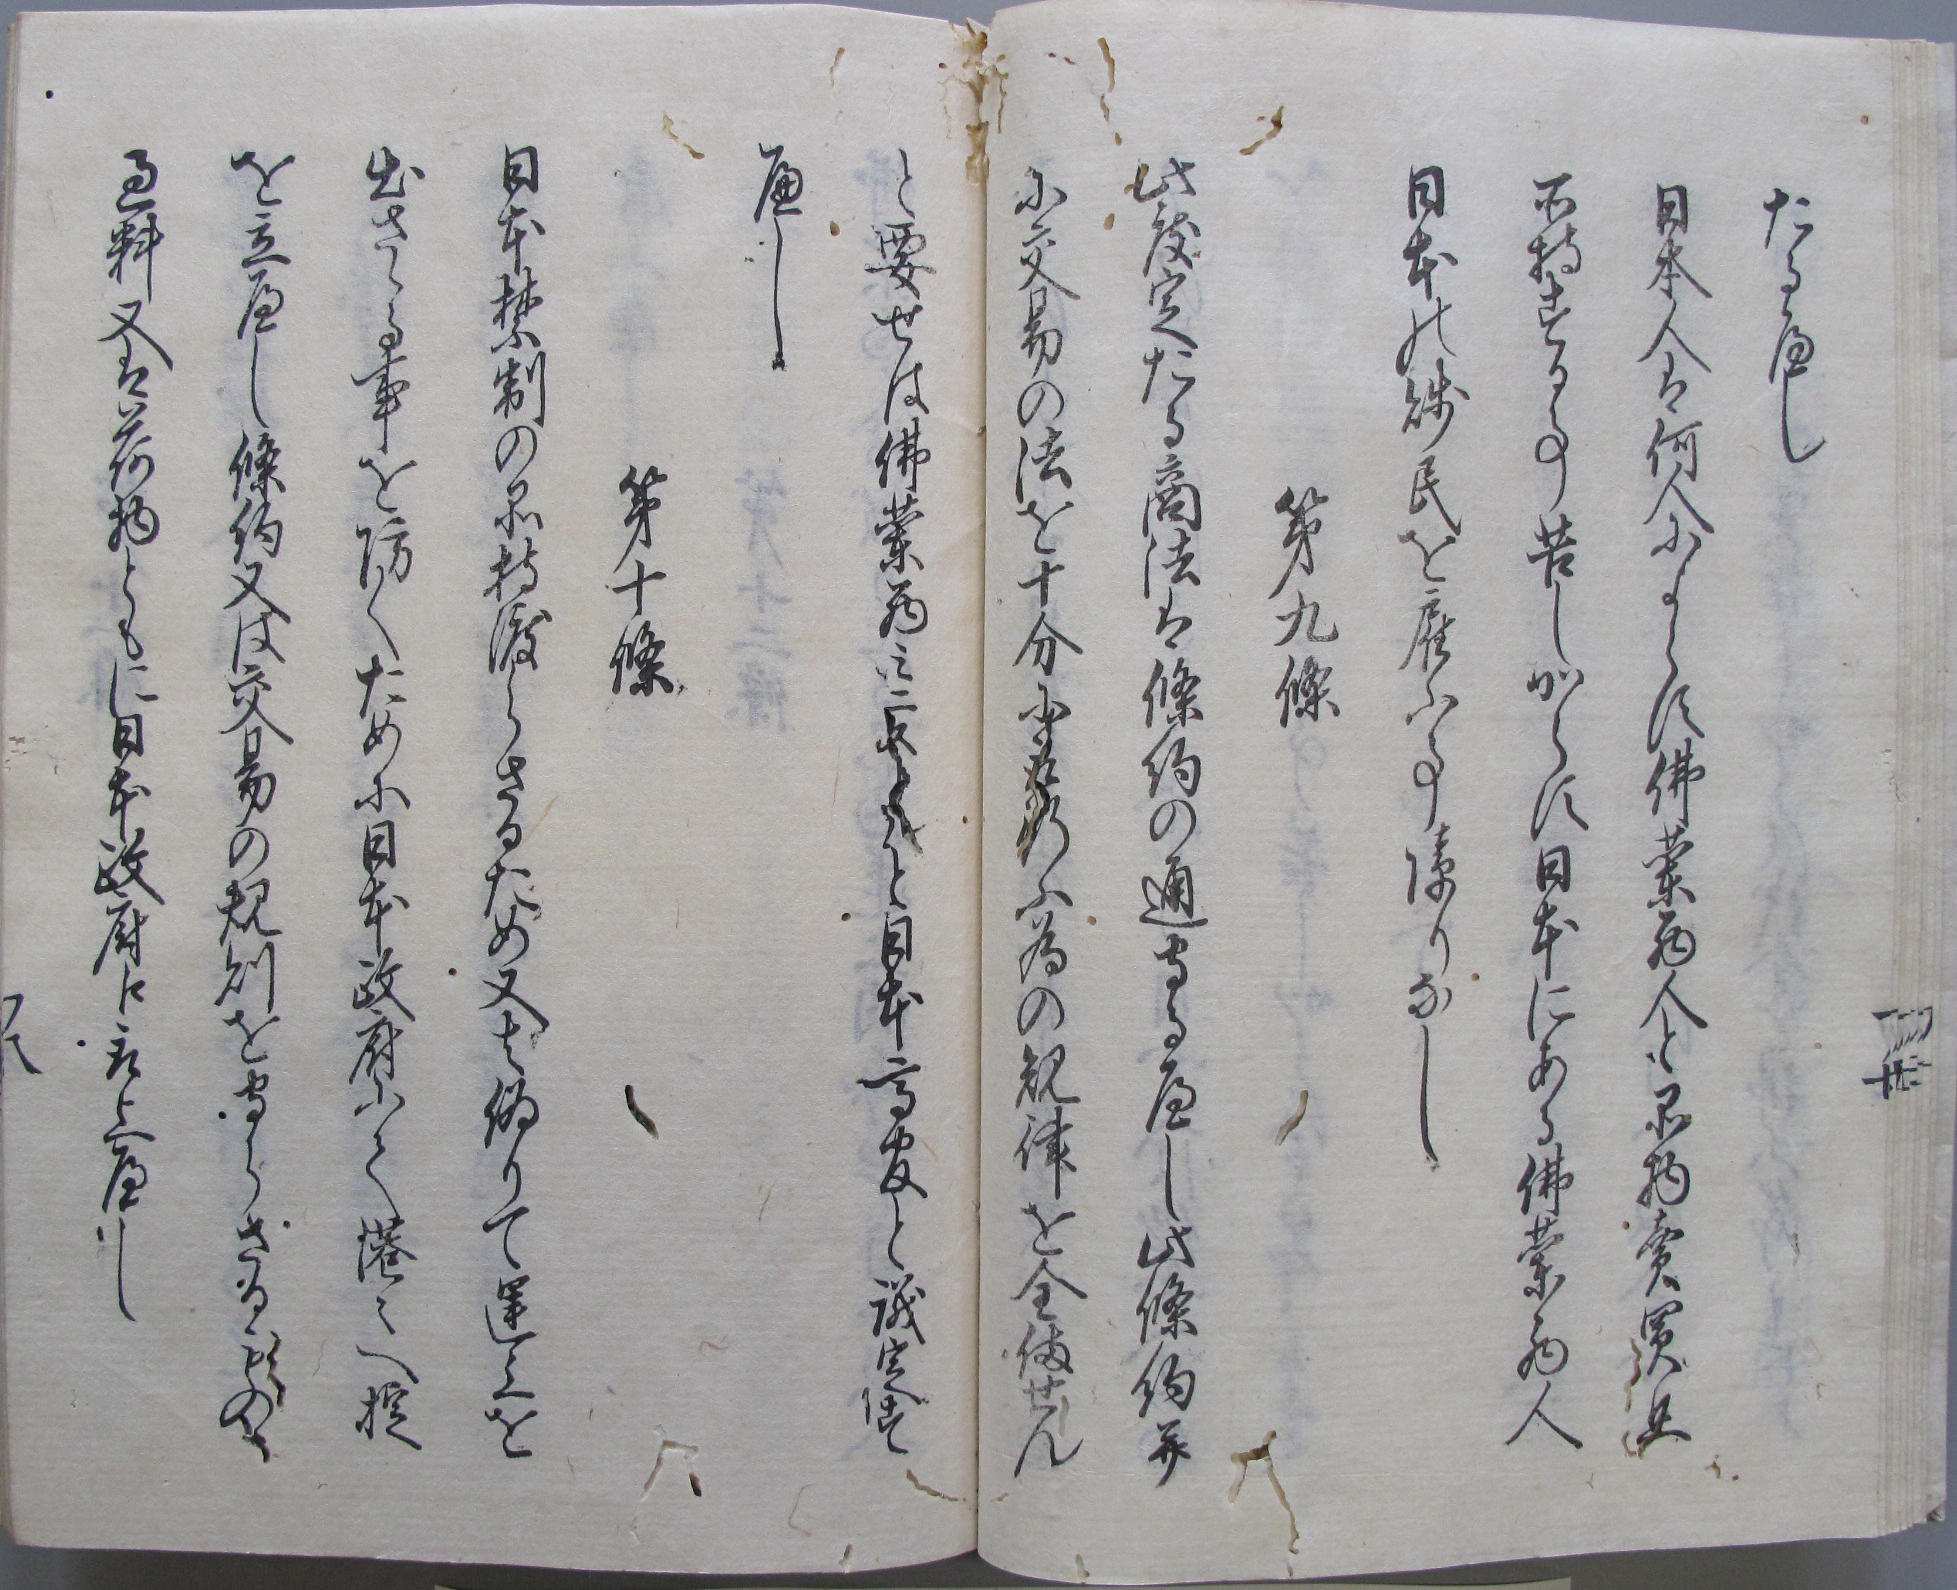 たるへし
日本人は何人によらす佛蘭西人と品物賣買并
所持する事苦しからす日本にある佛蘭西人
日本の賎民を雇ふ事障りなし
第九條
此度定たる商法は條約の通守るへし此條約并
に交易の法を十分に取行ふ為の規律を全備せん
と要せは佛蘭西ミニストルと日本高官と議定すへし
第十條
日本禁制の品持渡らさるため又は偽りて運上を
出さゝる事を防くために日本政府にて港々へ掟
を立へし條約又は交易の規則を守らさる者の
過料又は荷物ともに日本政府に取上へし